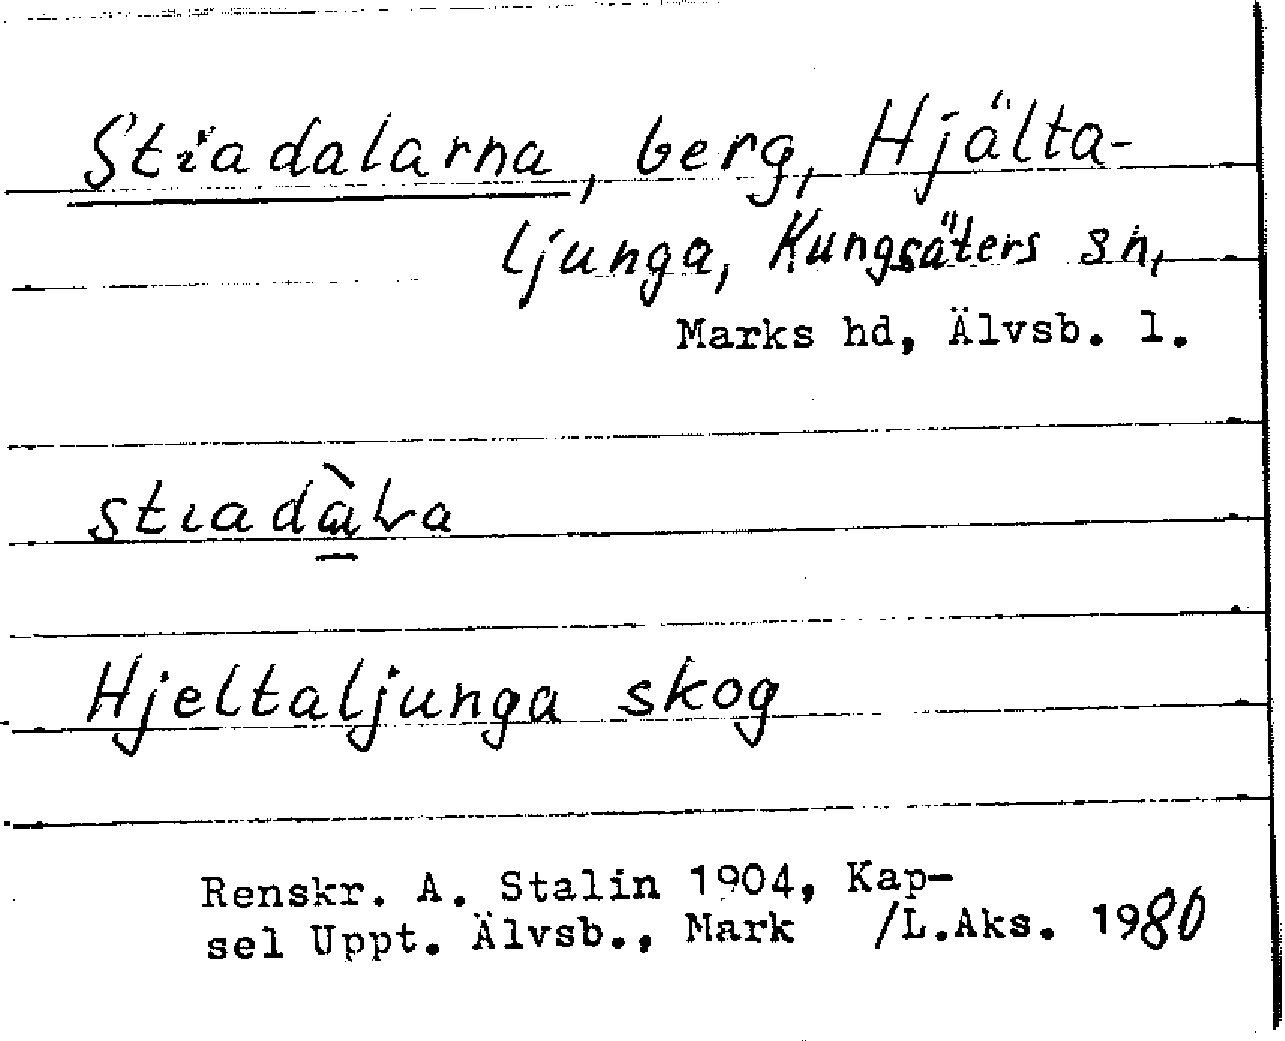 Stiadalarna, berg, Hjälta-
ljunga, Kungsäters sn,
Marks hd, Älvsb. l.
Hjeltaljunga skog
Renskr. A. Stalin 1904, Kap-
sel Uppt. Älvsb., Mark /L.Aks. 1980